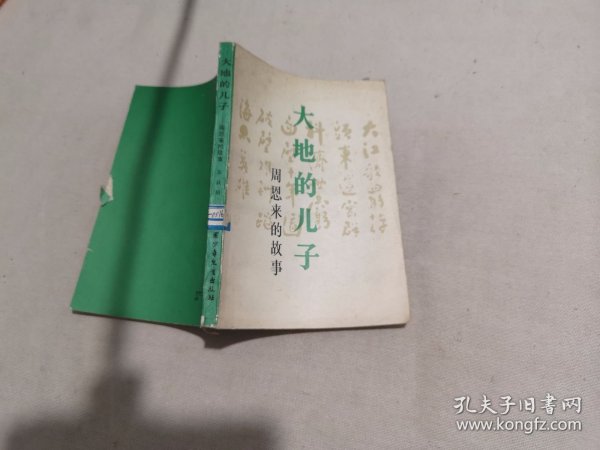 大地的儿子
周恩来的故事
大地的儿子
周恩来的故事
大江歌罢掉
头东邃密群
科济世穷
面壁十年图
破壁
海亦英雄
孔夫子旧书网
www.kongfz.com